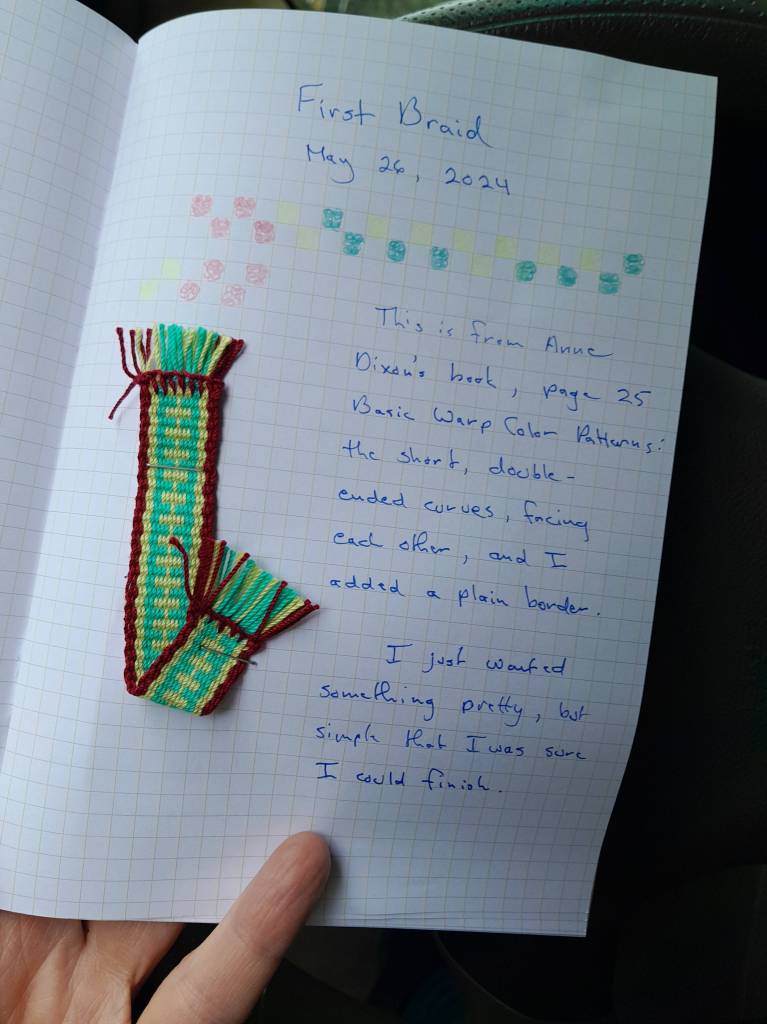 First Braid
May 26, 2024
This is from Anne
Dixon's book, page 25
Basic Warp Color Patterns:
the short, double-
ended curves, facing
each other, and I
added a plain border.
I just wanted
something pretty, but
simple that I was sure
I could finish.